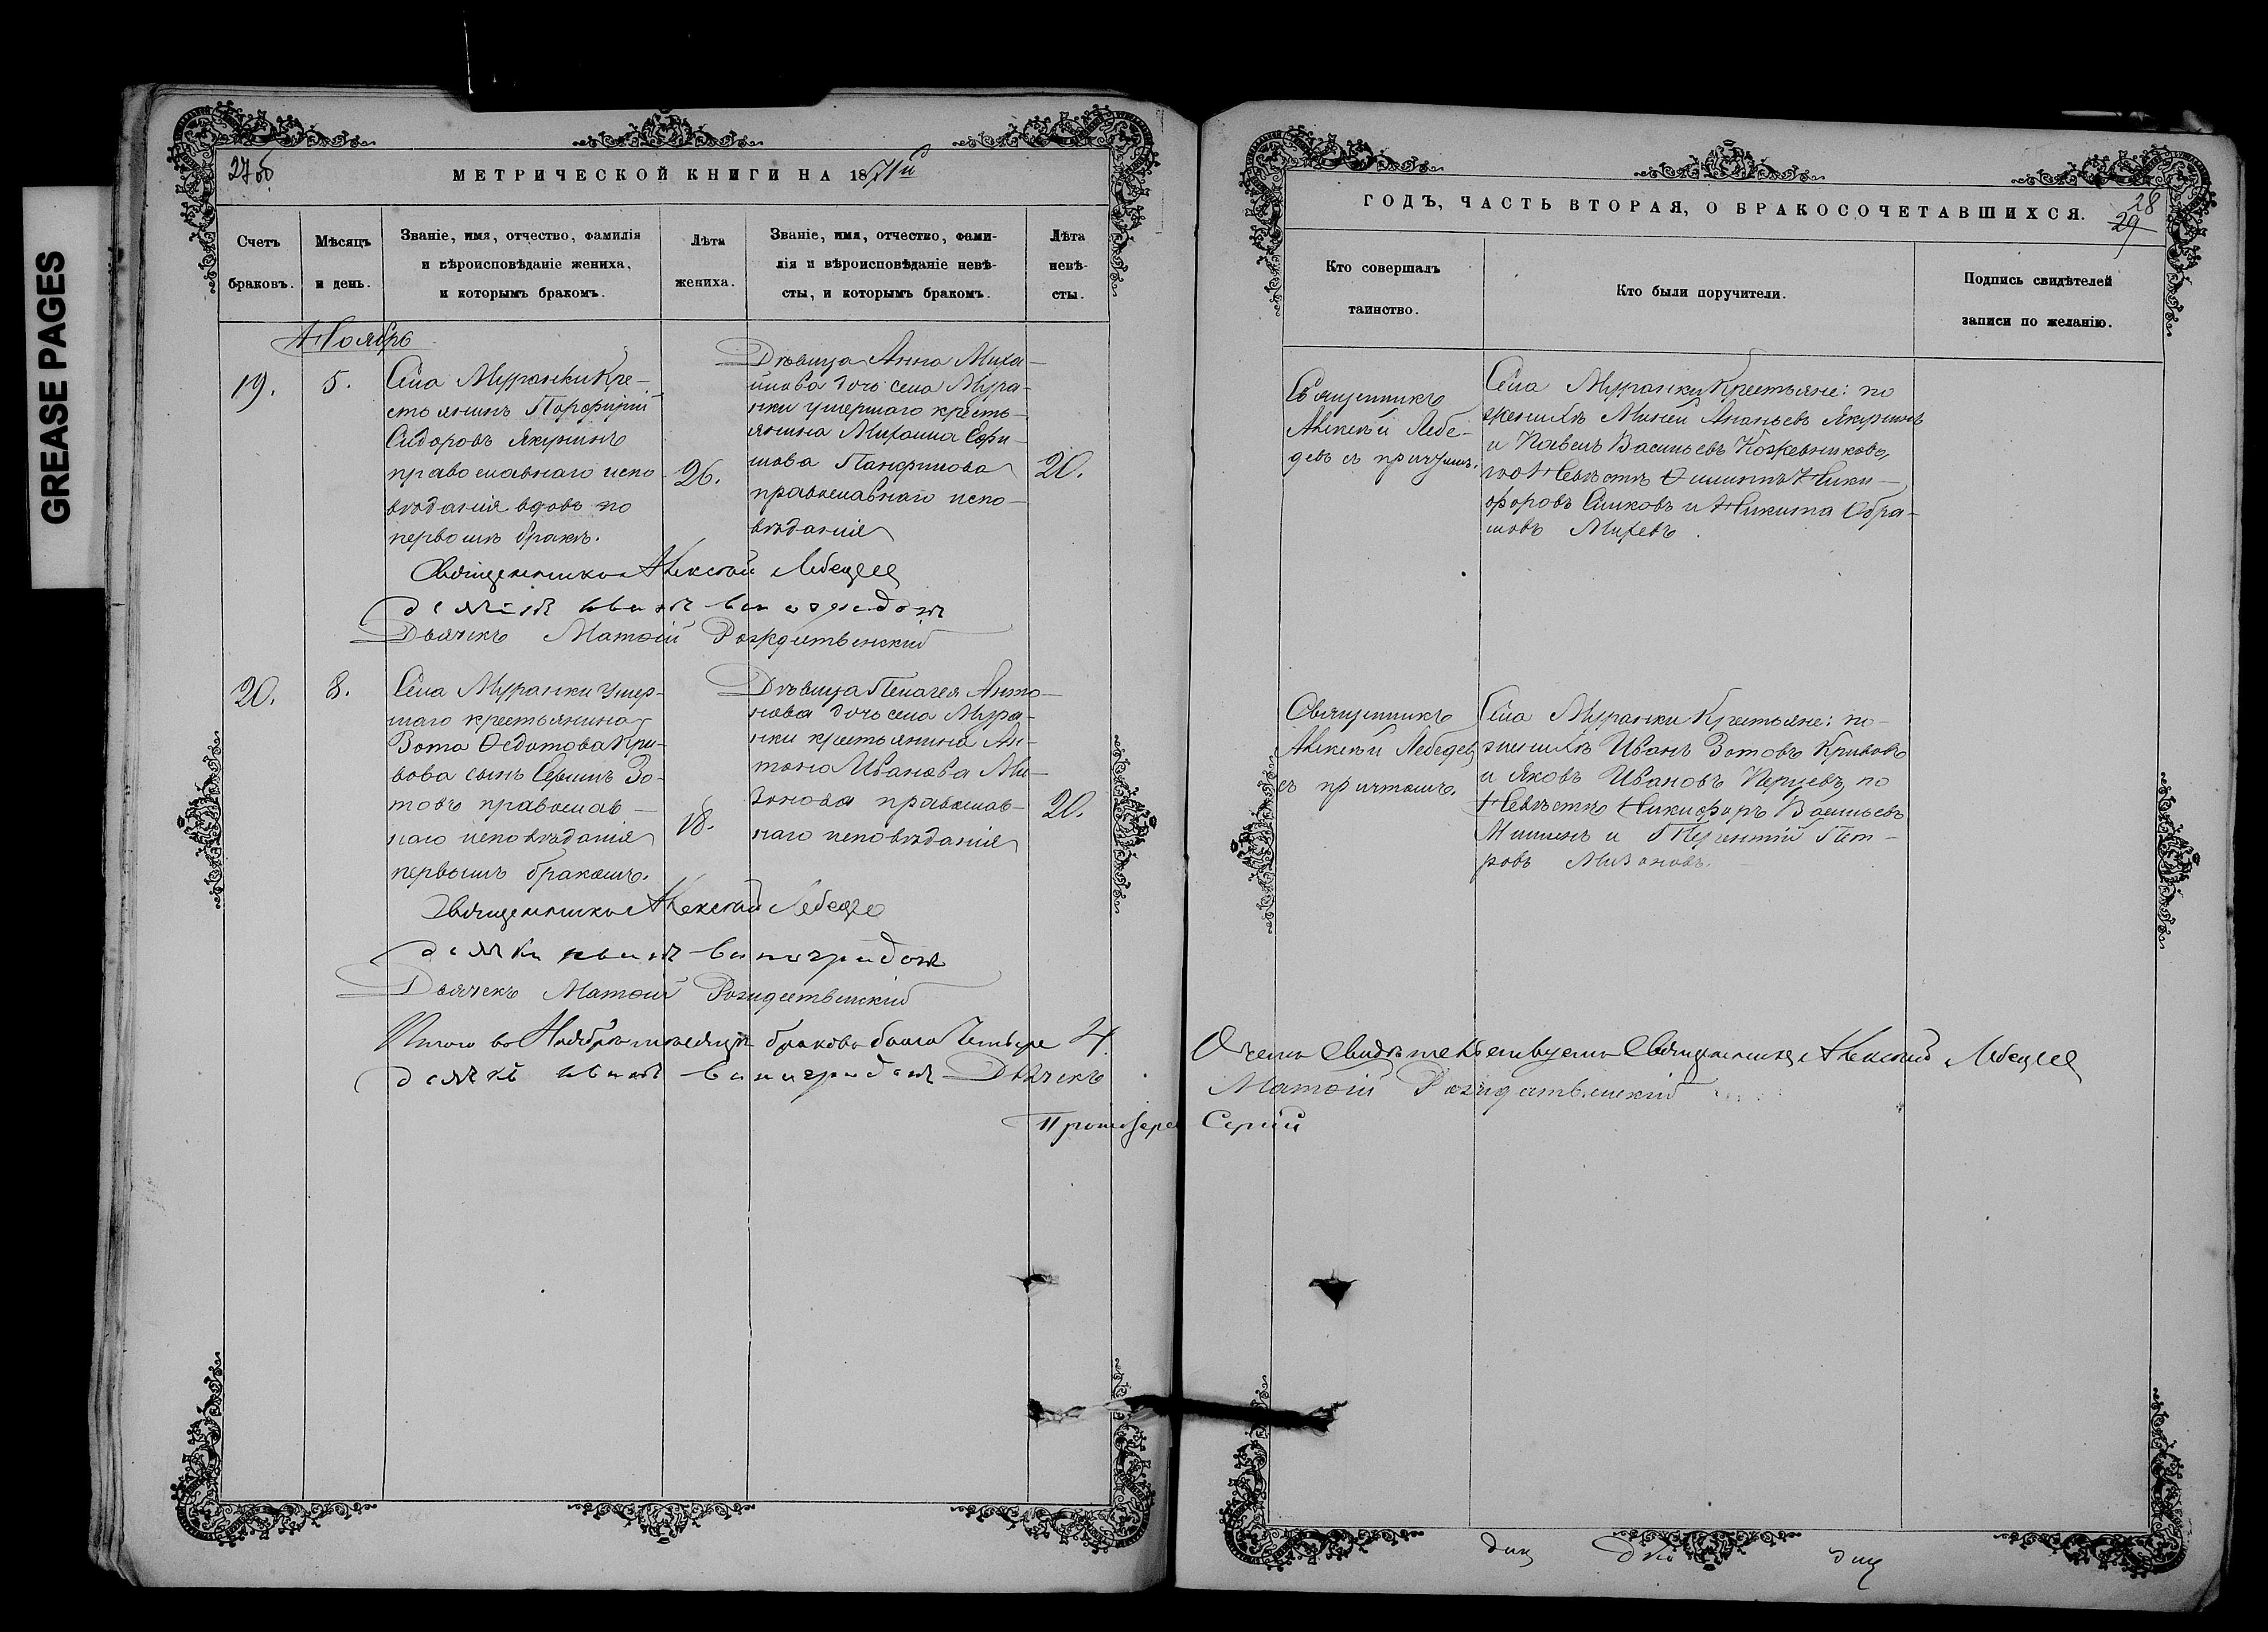 GREASE PAGES
27об
МЕТРИЧЕСКОЙ КНИГИ НА 1871й
Счетъ браковъ.
Мѣсяцъ и день.
Званіе, имя, отчество, фамилія
и вѣроисповѣданіе жениха,
и которымъ бракомъ.
Лѣта жениха.
Званіе, имя, отчество, фами-
лія и вѣроисповѣданіе невѣ-
сты, и которымъ бракомъ.
Лѣта невѣ-
сты.
Ноябрь
19.
5.
Села Муранки Кре-
стьянинъ Порфирий
Сидоровъ Якунинъ
православнаго испо
вѣданія вдовъ по
первомъ бракѣ.
26.
Дѣвица Анна Миха-
илова дочь села Мура-
нки умершаго кресть-
янина Михаила Ефи-
мова Панфилова
православнаго испо-
вѣданія
20.
Священникъ Алексѣй Лебедев
Дьячекъ Матѳій Рождественский
20.
8.
Села Муранки умер-
шаго крестьянина
Зота Ѳедотова Кри-
вова сынъ Зо-
товъ православ-
наго исповѣданія
первымъ бракомъ.
18.
Дѣвица Пелагея Анто-
нова дочь села Мура-
нки крестьянина Ан-
тона Иванова Ми-
зонова православ-
наго исповѣданія
20.
Священникъ Алексѣй Лебедев
Дьячекъ Матѳій Рождественский
Итого въ Ноябрѣ мѣсяцѣ браковъ было Четыре 4.
Дьячекъ
Протоіерей
ГОДЪ, ЧАСТЬ ВТОРАЯ, О БРАКОСОЧЕТАВШИХСЯ.
28
29
Кто совершалъ
таинство.
Кто были поручители.
Подпись свидѣтелей
записи по желанію.
Священникъ
Алексѣй Лебе-
девъ съ причтомъ.
Села Муранки Крестьяне: по
женихѣ Миней Ананьевъ Якунинъ
и Павелъ Васильевъ Кожевниковъ,
по Невѣстѣ Ники-
форовъ и Никита
Михевъ.
Священникъ
Алексѣй Лебедевъ
съ причтомъ.
Села Муранки Крестьяне: по
женихѣ Иванъ Зотовъ Кривовъ
и Яковъ Ивановъ по
Невѣстѣ Никифоръ Васильевъ
и Терентій Пет-
ровъ Мизоновъ.
О чемъ Свидѣтельствуемъ Священникъ Алексѣй Лебедев
Матѳій Рождественский